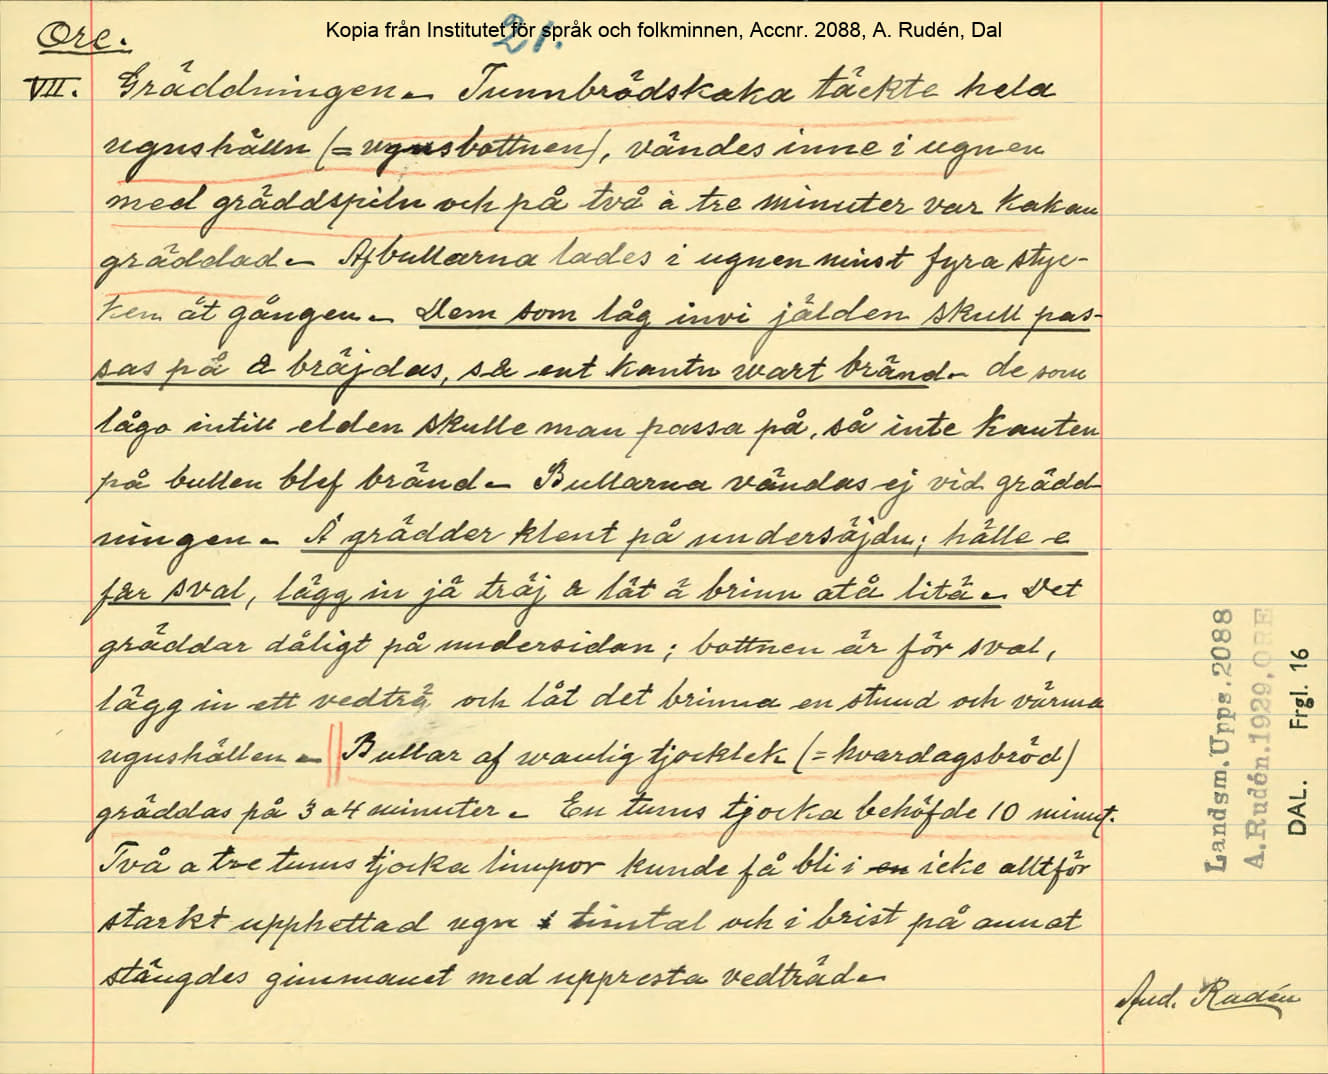 Kopia från Institutet för språk och folkminnen, Accnr. 2088, A. Rudén, Dal
Ore.
21.
VII. Gräddningen. Tunnbrödskaka täckte hela
ugnshälln (= ugnsbottnen), vändes inne i ugnen
med gräddspiln och på två à tre minuter var kakan
gräddad. Af bullarna lades i ugnen minst fyra styc-
ken åt gången. Dem som låg invi jälden skull pas-
sas på & bräjdas, så ent kantn wart bränd. de som
lågo intill elden skulle man passa på, så inte kanten
på bullen blef bränd. Bullarna vändas ej vid grädd-
ningen. Å grädder klent på undersäjdn; hälle e
får sval, lägg in jå träj & låt å brinn atå litä. Det
gräddar dåligt på undersidan; bottnen är för sval,
lägg in ett vedträ och låt det brinna en stund och värma
ugnshällen. Bullar af wanlig tjocklek (= hvardagsbröd)
gräddas på 3 a 4 minuter. En tums tjocka behöfde 10 minut.
Två a tre tums tjocka limpor kunde få bli i en icke alltför
starkt upphettad ugn i timtal och i brist på annat
stängdes ginmanet med uppresta vedträd.
And. Rudén
Landsm. Upps. 2088
A. Rudén. 1929, ORE
DAL. Frgl. 16